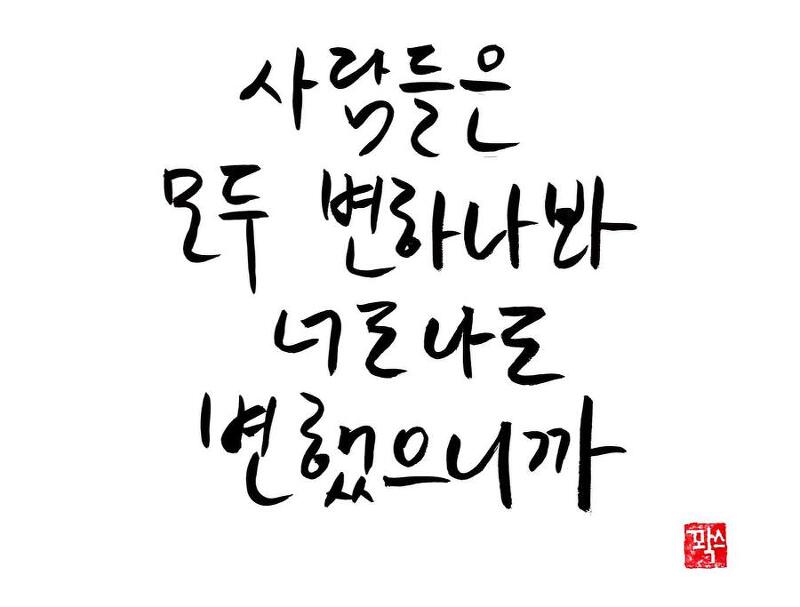 사람들은
모두 변하나봐
너도나도
변했으니까